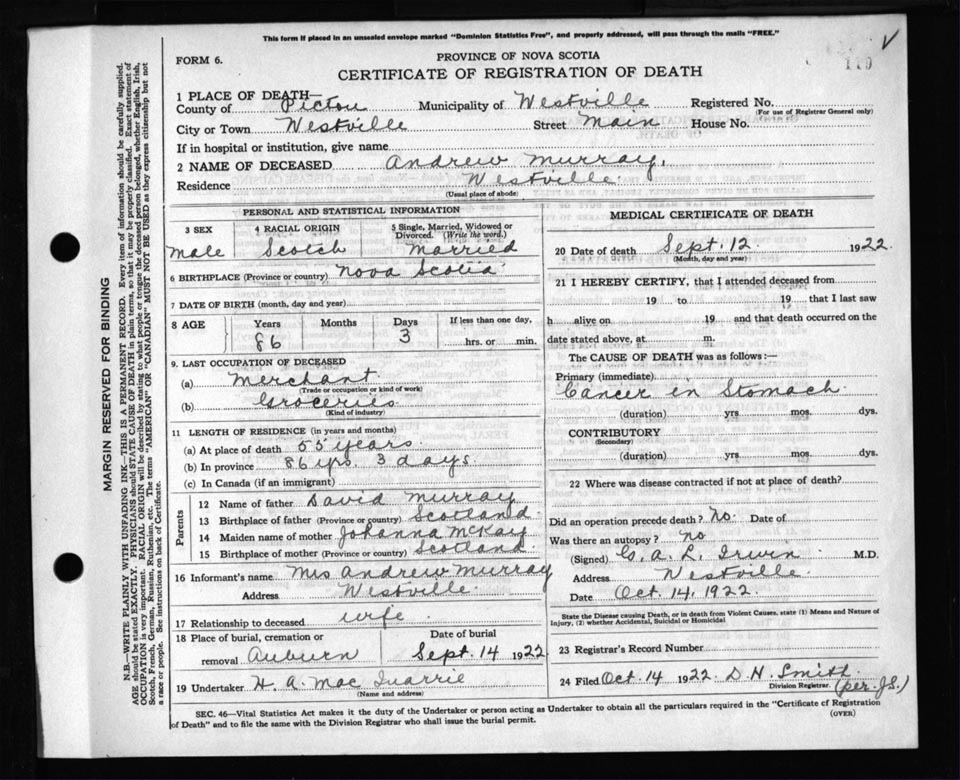 This form if placed in an unsealed envelope marked "Dominion Statistics Free", and properly addressed, will pass through the mails "FREE."
FORM 6.
PROVINCE OF NOVA SCOTIA
CERTIFICATE OF REGISTRATION OF DEATH
1 PLACE OF DEATH—
County of Pictou Municipality of Westville Registered No.
(For use of Registrar General only)
City or Town Westville Street Main House No.
If in hospital or institution, give name
2 NAME OF DECEASED Andrew Murray,
Residence Westville
(Usual place of abode)
PERSONAL AND STATISTICAL INFORMATION
3 SEX 4 RACIAL ORIGIN 5 Single, Married, Widowed or Divorced. (Write the word.)
Male Scotch Married
6 BIRTHPLACE (Province or country) Nova Scotia
7 DATE OF BIRTH (month, day and year)
8 AGE Years Months Days If less than one day,
86 3 hrs. or min.
9. LAST OCCUPATION OF DECEASED
(a) Merchant
(Trade or occupation or kind of work)
(b) Groceries
(Kind of industry)
11 LENGTH OF RESIDENCE (in years and months)
(a) At place of death 55 years
(b) In province 86 yrs. 3 days
(c) In Canada (if an immigrant)
Parents
12 Name of father David Murray
13 Birthplace of father (Province or country) Scotland
14 Maiden name of mother Johanna McKay
15 Birthplace of mother (Province or country) Scotland
16 Informant's name Mrs Andrew Murray
Address Westville
17 Relationship to deceased wife
18 Place of burial, cremation or Date of burial
removal Auburn Sept. 14 1922
19 Undertaker H. A. Mac Quarrie
(Name and address)
MEDICAL CERTIFICATE OF DEATH
20 Date of death Sept. 12 1922
(Month, day and year)
21 I HEREBY CERTIFY, that I attended deceased from
19 to 19 that I last saw
h alive on 19 and that death occurred on the
date stated above, at m.
The CAUSE OF DEATH was as follows:—
Primary (immediate)
Cancer in Stomach
(duration) yrs mos. dys.
CONTRIBUTORY
(Secondary)
(duration) yrs. mos. dys.
22 Where was disease contracted if not at place of death?
Did an operation precede death? No. Date of
Was there an autopsy? No
(Signed) C. A. L. Irwin M.D.
Address Westville
Date Oct. 14, 1922.
State the Disease causing Death, or in death from Violent Causes, state (1) Means and Nature of
Injury, (2) whether Accidental, Suicidal or Homicidal
23 Registrar's Record Number
24 Filed Oct 14 1922 D H Smith
Division Registrar. (per J.S.)
SEC. 46—Vital Statistics Act makes it the duty of the Undertaker or person acting as Undertaker to obtain all the particulars required in the "Certificate of Registration
of Death" and to file the same with the Division Registrar who shall issue the burial permit.
(OVER)
MARGIN RESERVED FOR BINDING
N.B.—WRITE PLAINLY WITH UNFADING INK—THIS IS A PERMANENT RECORD. Every item of information should be carefully supplied.
AGE should be stated EXACTLY. PHYSICIANS should STATE CAUSE OF DEATH in plain terms, so that it may be properly classified. Exact statement of
OCCUPATION is very important. RACIAL ORIGIN will be described by stating to what people or tongue the deceased person belonged, whether English, Irish,
Scotch, French, German, Russian, Ruthenian, etc. The terms "AMERICAN" or "CANADIAN" MUST NOT BE USED as they express citizenship but not
a race or people. See instructions on back of Certificate.